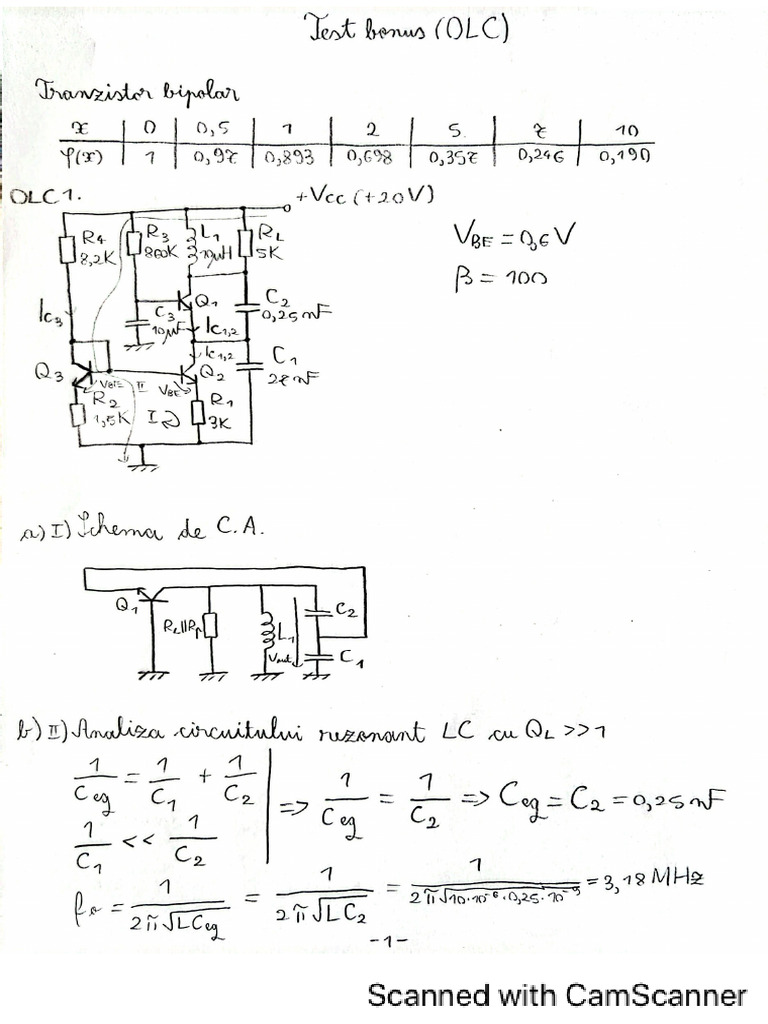 Test bonus (OLC)
Tranzistor bipolar
x | 0 | 0,5 | 1 | 2 | 5 | 7 | 10
φ(x) | 1 | 0,97 | 0,893 | 0,698 | 0,357 | 0,246 | 0,190
OLC1.
+Vcc (+20V)
R4 8,2K
R3 860K
L1 10μH
RL 5K
VBE = 0,6V
β = 100
Q1
C2 0,25nF
C3 10μF
IC3
IC1,2
IC1,2
C1 27nF
Q3
VBE
II
VBE
Q2
R2 1,5K
I
R1 3K
a) I) Schema de C.A.
Q1
RL||Rp
L1
Vout
C2
C1
b) II) Analiza circuitului rezonant LC cu QL >> 1
1/Ceg = 1/C1 + 1/C2
1/C1 << 1/C2
=> 1/Ceg = 1/C2 => Ceg = C2 = 0,25nF
fo = 1/2π√LCeg = 1/2π√LC2 = 1/2π√10·10⁻⁶·0,25·10⁻⁹ = 3,18 MHz
-1-
Scanned with CamScanner